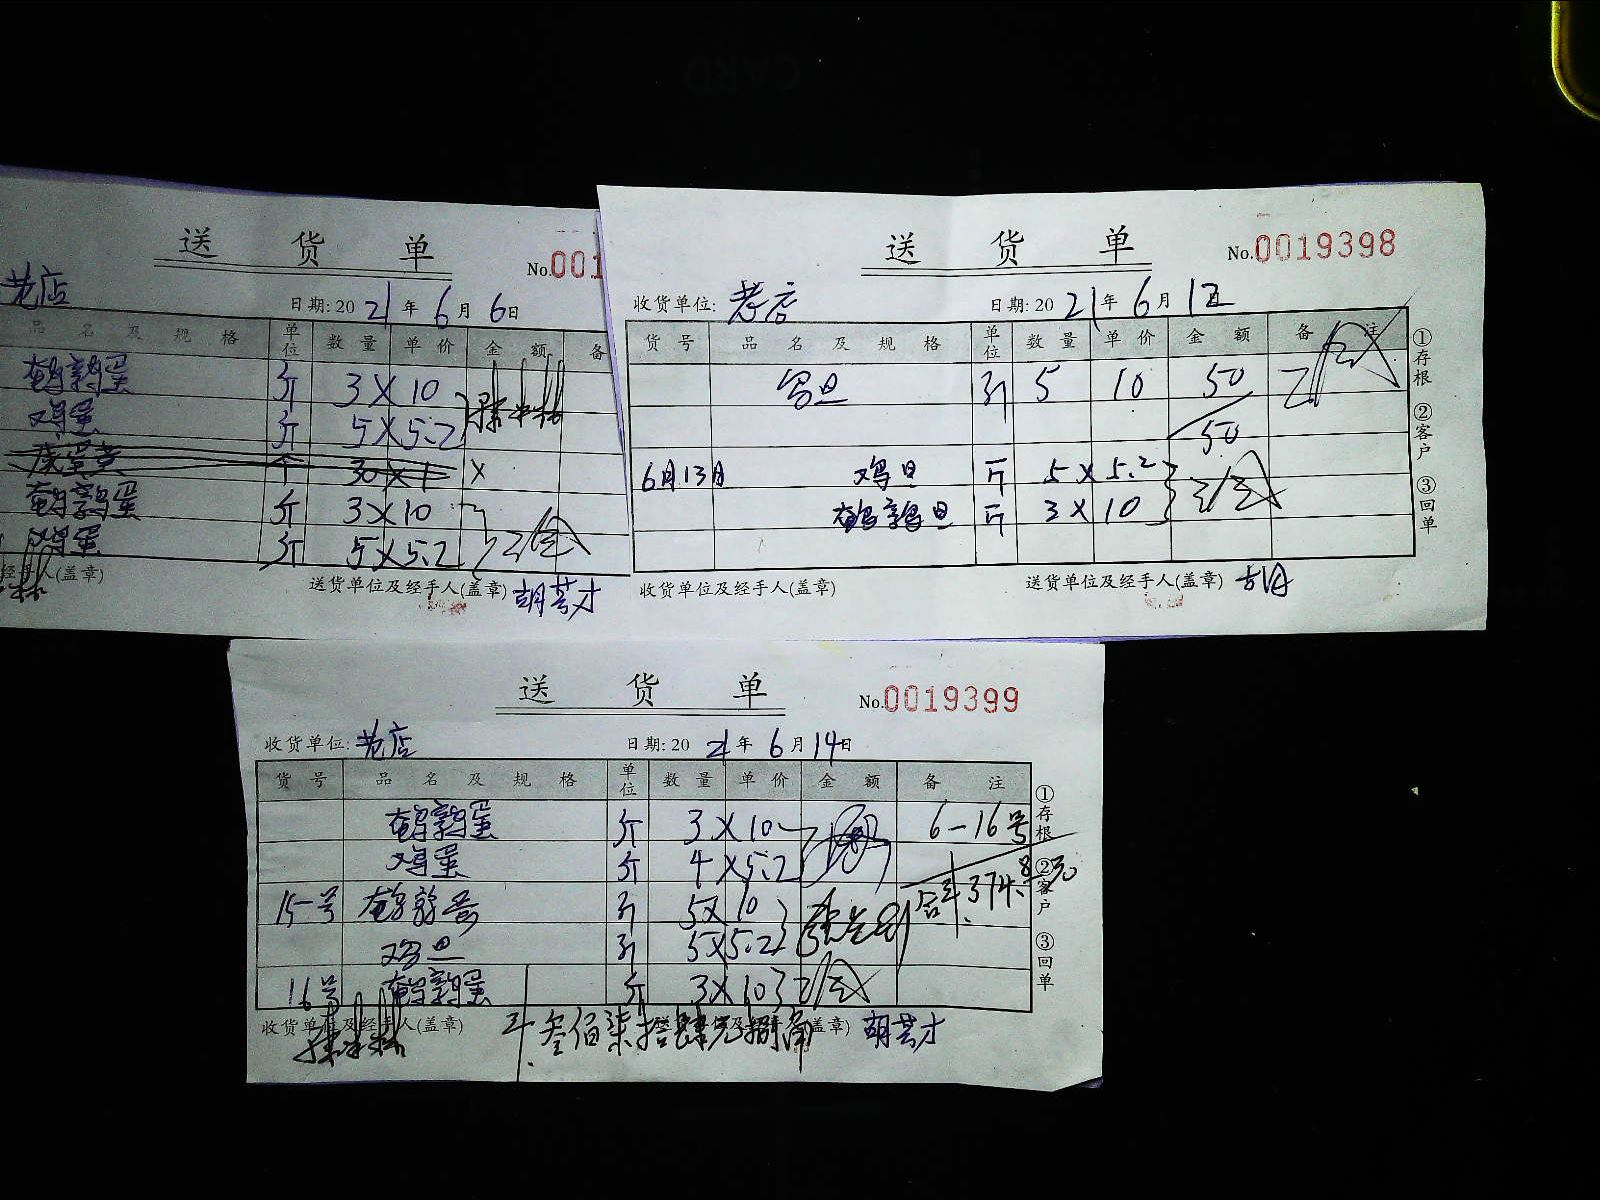 送 货 单
No.001
老店
日期: 2021年 6月 6日
品 名 及 规 格 单位 数 量 单 价 金 额 备
鹌鹑蛋 斤 3×10
鸡蛋 斤 5×5.2
咸蛋黄 个 30×1 ×
鹌鹑蛋 斤 3×10
鸡蛋 斤 5×5.2
经手人(盖章)
送货单位及经手人(盖章) 胡芸才
送 货 单
No.0019398
收货单位: 老店
日期: 2021年 6月 12
货 号 品 名 及 规 格 单位 数 量 单 价 金 额 备 注
斤 5 10 50
50
6月13日 鸡旦 斤 5×5.2
鹌鹑旦 斤 3×10
收货单位及经手人(盖章)
送货单位及经手人(盖章) 胡
①存根
②客户
③回单
送 货 单
No.0019399
收货单位: 老店
日期: 2021年 6月 14日
货 号 品 名 及 规 格 单位 数 量 单 价 金 额 备 注
鹌鹑蛋 斤 3×10 6-16号
鸡蛋 斤 4×5.2
15号 鹌鹑蛋 斤 5×10 合计: 374.8元
鸡旦 斤 5×5.2
16号 鹌鹑蛋 斤 3×10
收货单位及经手人(盖章)
叁佰柒拾肆元捌角
胡芸才
①存根
②客户
③回单